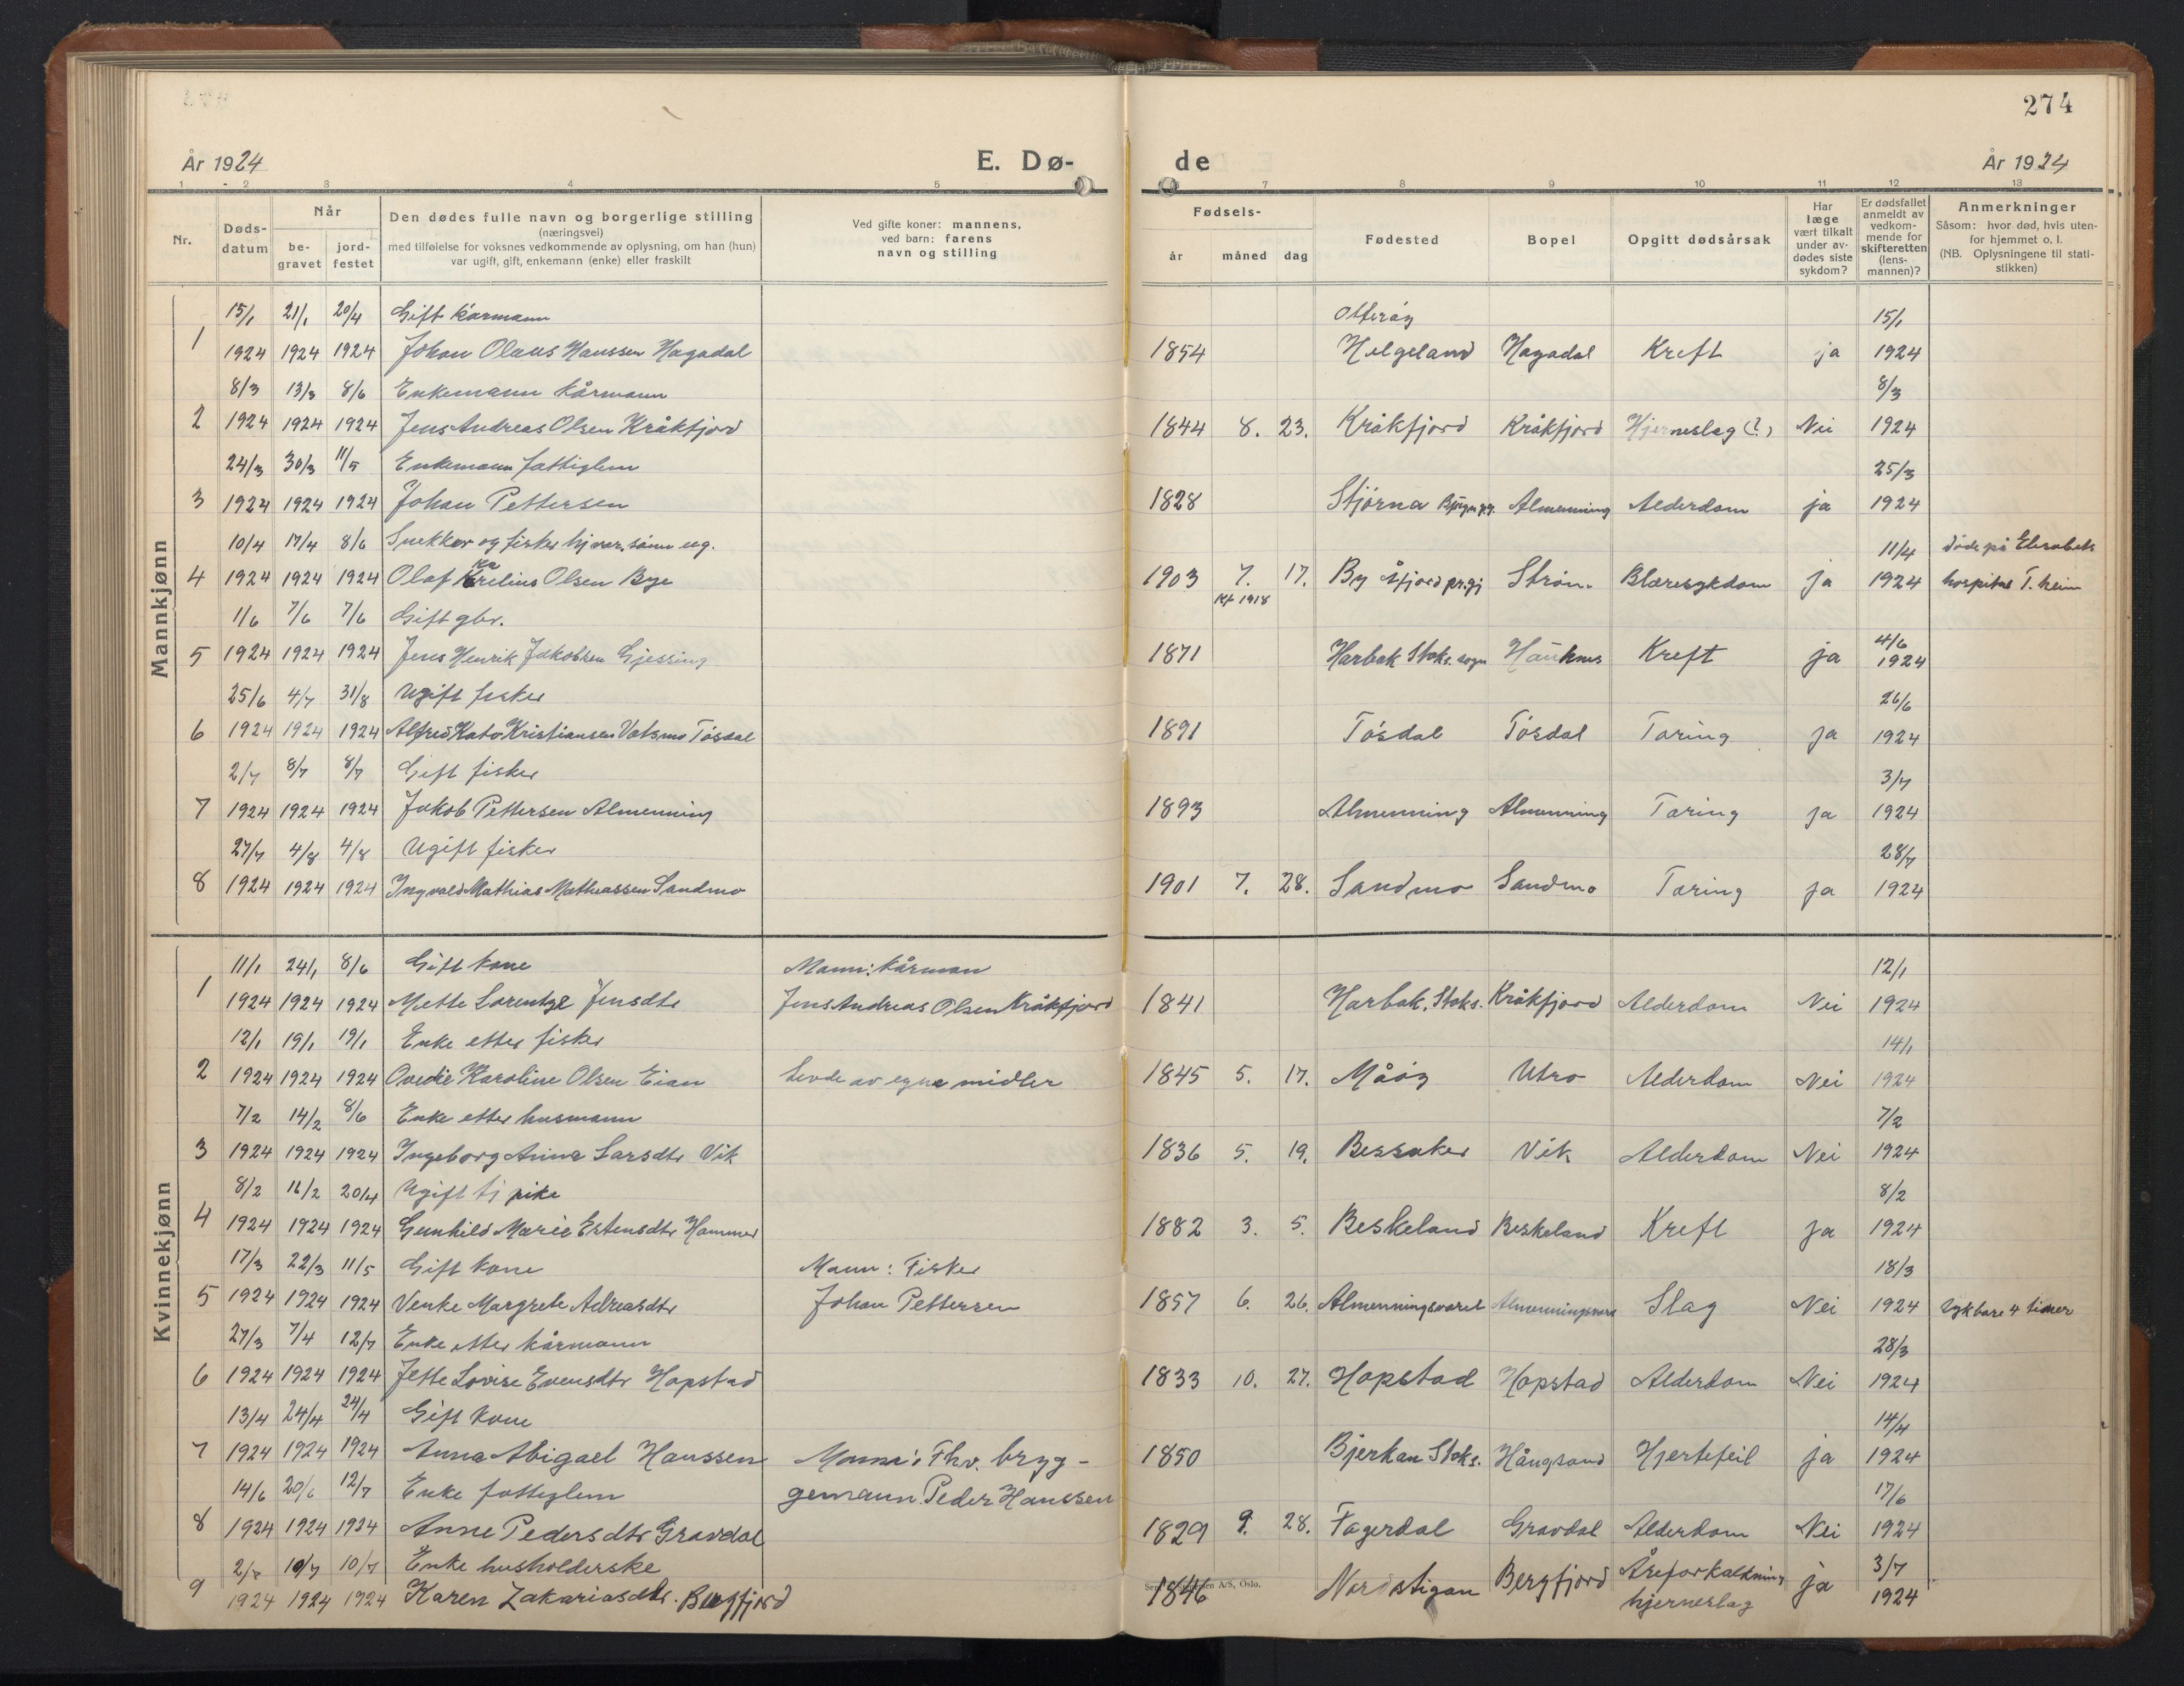 274
År 1924 E. Dø- de År 1924
1 2 3 4 5 7 8 9 10 11 12 13
Nr.
Døds-
datum
Når
be-
gravet
jord-
festet
Den dødes fulle navn og borgerlige stilling
(næringsvei)
med tilføielse for voksnes vedkommende av oplysning, om han (hun)
var ugift, gift, enkemann (enke) eller fraskilt
Ved gifte koner: mannens,
ved barn: farens
navn og stilling
Fødsels-
år måned dag
Fødested
Bopel
Opgitt dødsårsak
Har
læge
vært tilkalt
under av-
dødes siste
sykdom?
Er dødsfallet
anmeldt av
vedkom-
mende for
skifteretten
(lens-
mannen)?
Anmerkninger
Såsom: hvor død, hvis uten-
for hjemmet o. l.
(NB. Oplysningene til stati-
stikken)
Mannkjønn
15/1 21/1 20/4 Gift kårmann Otterøy 15/1
1 1924 1924 1924 Johan Olaus Hanssen Hagadal 1854 Helgeland Hagadal Kreft ja 1924
8/3 13/3 8/6 Enkemann kårmann 8/3
2 1924 1924 1924 Jens Andreas Olsen Kråkfjord 1844 8. 23. Kråkfjord Kråkfjord Hjerneslag (?) Nei 1924
24/3 30/3 11/5 Enkemann fattiglem 25/3
3 1924 1924 1924 Johan Pettersen 1828 Stjørna Almenning Alderdom ja 1924
10/4 17/4 8/6 Snekker og fisker hj.vær. sønn ug. 11/4 døde på Elisabeth
4 1924 1924 1924 Olaf Karelius Olsen Bye 1903 7. 17. By Åfjord pr.gj Strøm. Blæresykdom ja 1924 hospital T.heim
Kf 1918
1/6 7/6 7/6 Gift gbr. 4/6
5 1924 1924 1924 Jens Henrik Jakobsen Gjessing 1871 Harbak Stoks. sogn Kreft ja 1924
25/6 4/7 31/8 Ugift fisker 26/6
6 1924 1924 1924 Alfred Kato Kristiansen Vatsmo Tøsdal 1891 Tøsdal Tøsdal Tæring ja 1924
2/7 8/7 8/7 Gift fisker 3/7
7 1924 1924 1924 Jakob Pettersen Almenning 1893 Almenning Almenning Tæring ja 1924
27/7 4/8 4/8 Ugift fisker 28/7
8 1924 1924 1924 Ingvald Mathias Mathiassen Sandmo 1901 7. 28. Sandmo Sandmo Tæring ja 1924
Kvinnekjønn
11/1 24/1 8/6 Gift kone Mann: kårman 12/1
1 1924 1924 1924 Mette Lorentze Jensdtr Jens Andreas Olsen Kråkfjord 1841 Harbak, Stoks. Kråkfjord Alderdom Nei 1924
12/1 19/1 19/1 Enke etter fisker 14/1
2 1924 1924 1924 Ovedie Karoline Olsen Eian Levde av egne midler 1845 5. 17. Måøy Utro Alderdom Nei 1924
7/2 14/2 8/6 Enke etter husmann 7/2
3 1924 1924 1924 Ingeborg Anna Larsdtr Vik 1836 5. 19. Bessaker Vik Alderdom Nei 1924
8/2 16/2 20/4 Ugift tj pike 8/2
4 1924 1924 1924 Gunhild Marie Estensdtr Hammer 1882 3. 5. Beskeland Beskeland Kreft ja 1924
17/3 22/3 11/5 Gift kone Mann: Fisker 18/3
5 1924 1924 1924 Venke Margrete Adreasdtr Johan Pettersen 1857 6. 26. Almenningsværet Almenningsvær Slag Nei 1924 syk bare 4 timer
27/3 7/4 12/7 Enke etter kårmann 28/3
6 1924 1924 1924 Jette Lovise Evensdtr Hopstad 1833 10. 27. Hopstad Hopstad Alderdom Nei 1924
13/4 24/4 24/4 Gift kone 14/4
7 1924 1924 1924 Anna Abigael Hanssen Mann: Fhv. bryg- 1850 Bjerkan Stoks. Hångsand Hjertefeil ja 1924
14/6 20/6 12/7 Enke fattiglem gemann Peder Hanssen 17/6
8 1924 1924 1924 Anne Pedersdtr Gravdal 1829 9. 28. Fagerdal Gravdal Alderdom Nei 1924
2/7 10/7 10/7 Enke husholderske 3/7
9 1924 1924 1924 Karen Zakariasdtr. Bergfjord 1846 Nordstigan Bergfjord Åreforkalkning ja 1924
hjerneslag
A/S, Oslo.